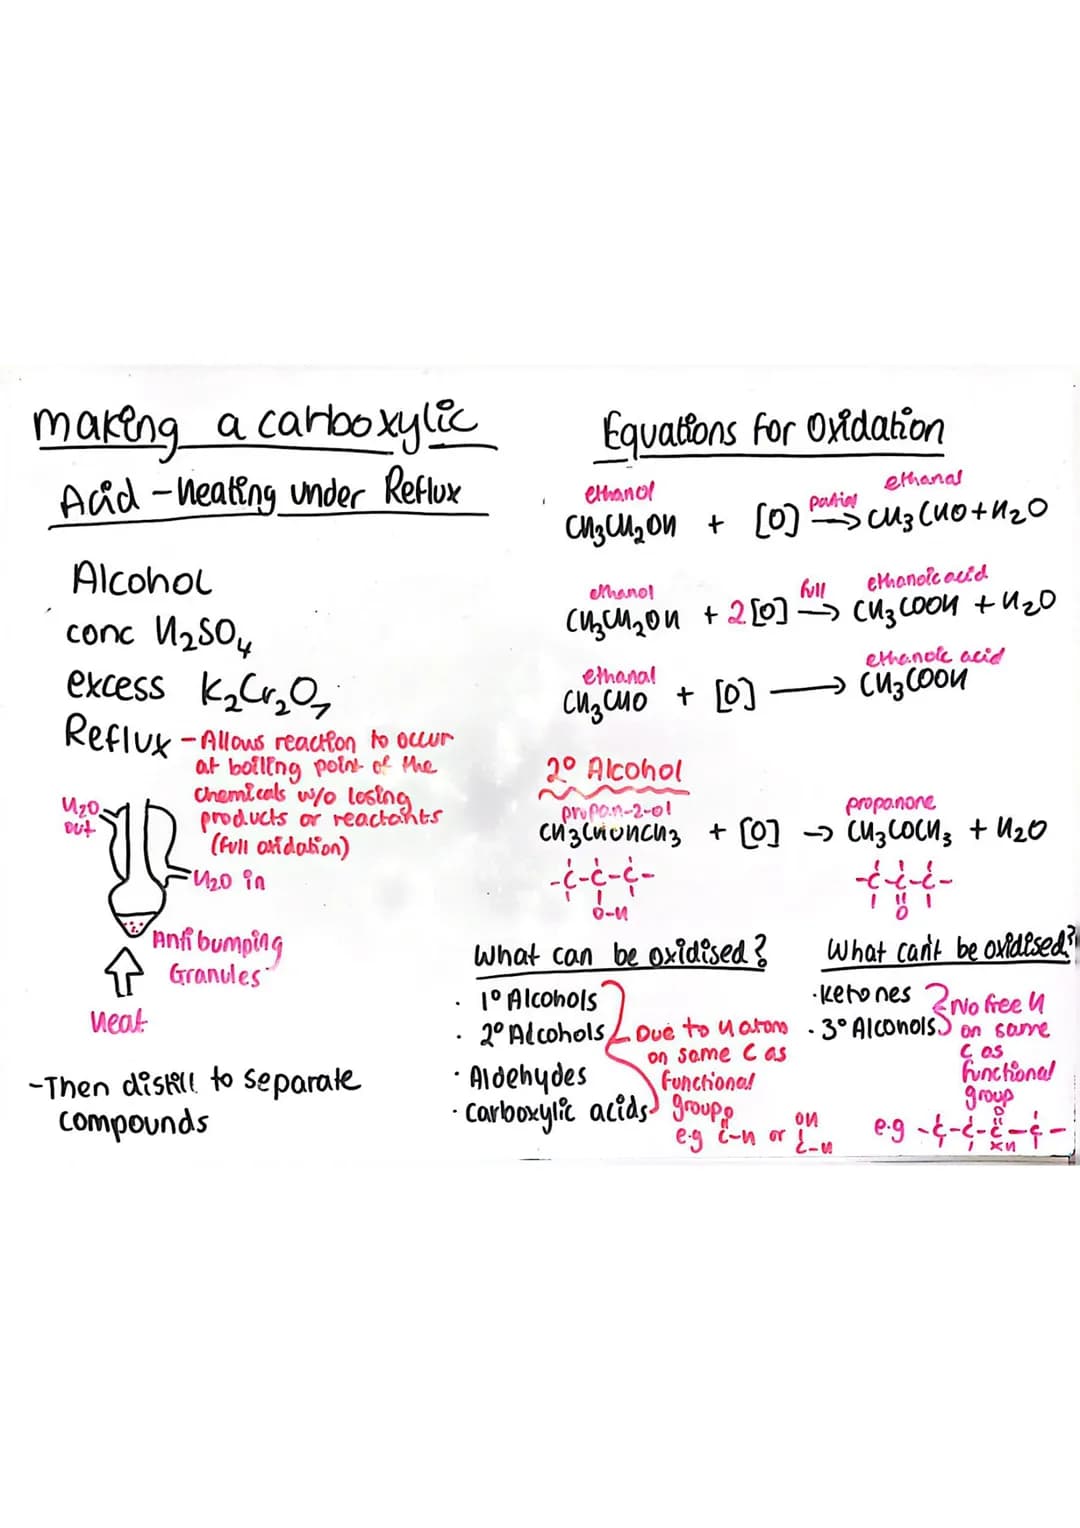 making a carboxylic
Acid - Heating under Reflux
Alcohol
conc H₂SO₄
excess K₂Cr₂O₇
Reflux - Allows reaction to occur
at boiling point of the
chemicals w/o losing
products or reactants
(full oxidation)
H₂O
out
H₂O in
Anti bumping
Granules
Heat
-Then distill to separate
compounds
Equations for Oxidation
ethanol ethanal
CH₃CH₂OH + [O] partial → CH₃CHO + H₂O
ethanol full ethanoic acid
CH₃CH₂OH + 2[O] → CH₃COOH + H₂O
ethanal ethanoic acid
CH₃CHO + [O] → CH₃COOH
2° Alcohol
propan-2-ol propanone
CH₃CHOHCH₃ + [O] → CH₃COCH₃ + H₂O
-C-C-C- -C-C-C-
O-H O
What can be oxidised?
· 1° Alcohols
· 2° Alcohols
· Aldehydes
· Carboxylic acids
Due to H atom
on same C as
functional
group
e.g C-H or OH
C-H
What can't be oxidised?
· Ketones
· 3° Alcohols
No free H
on same
C as
functional
group
O
e.g -C-C-C-C-
XH